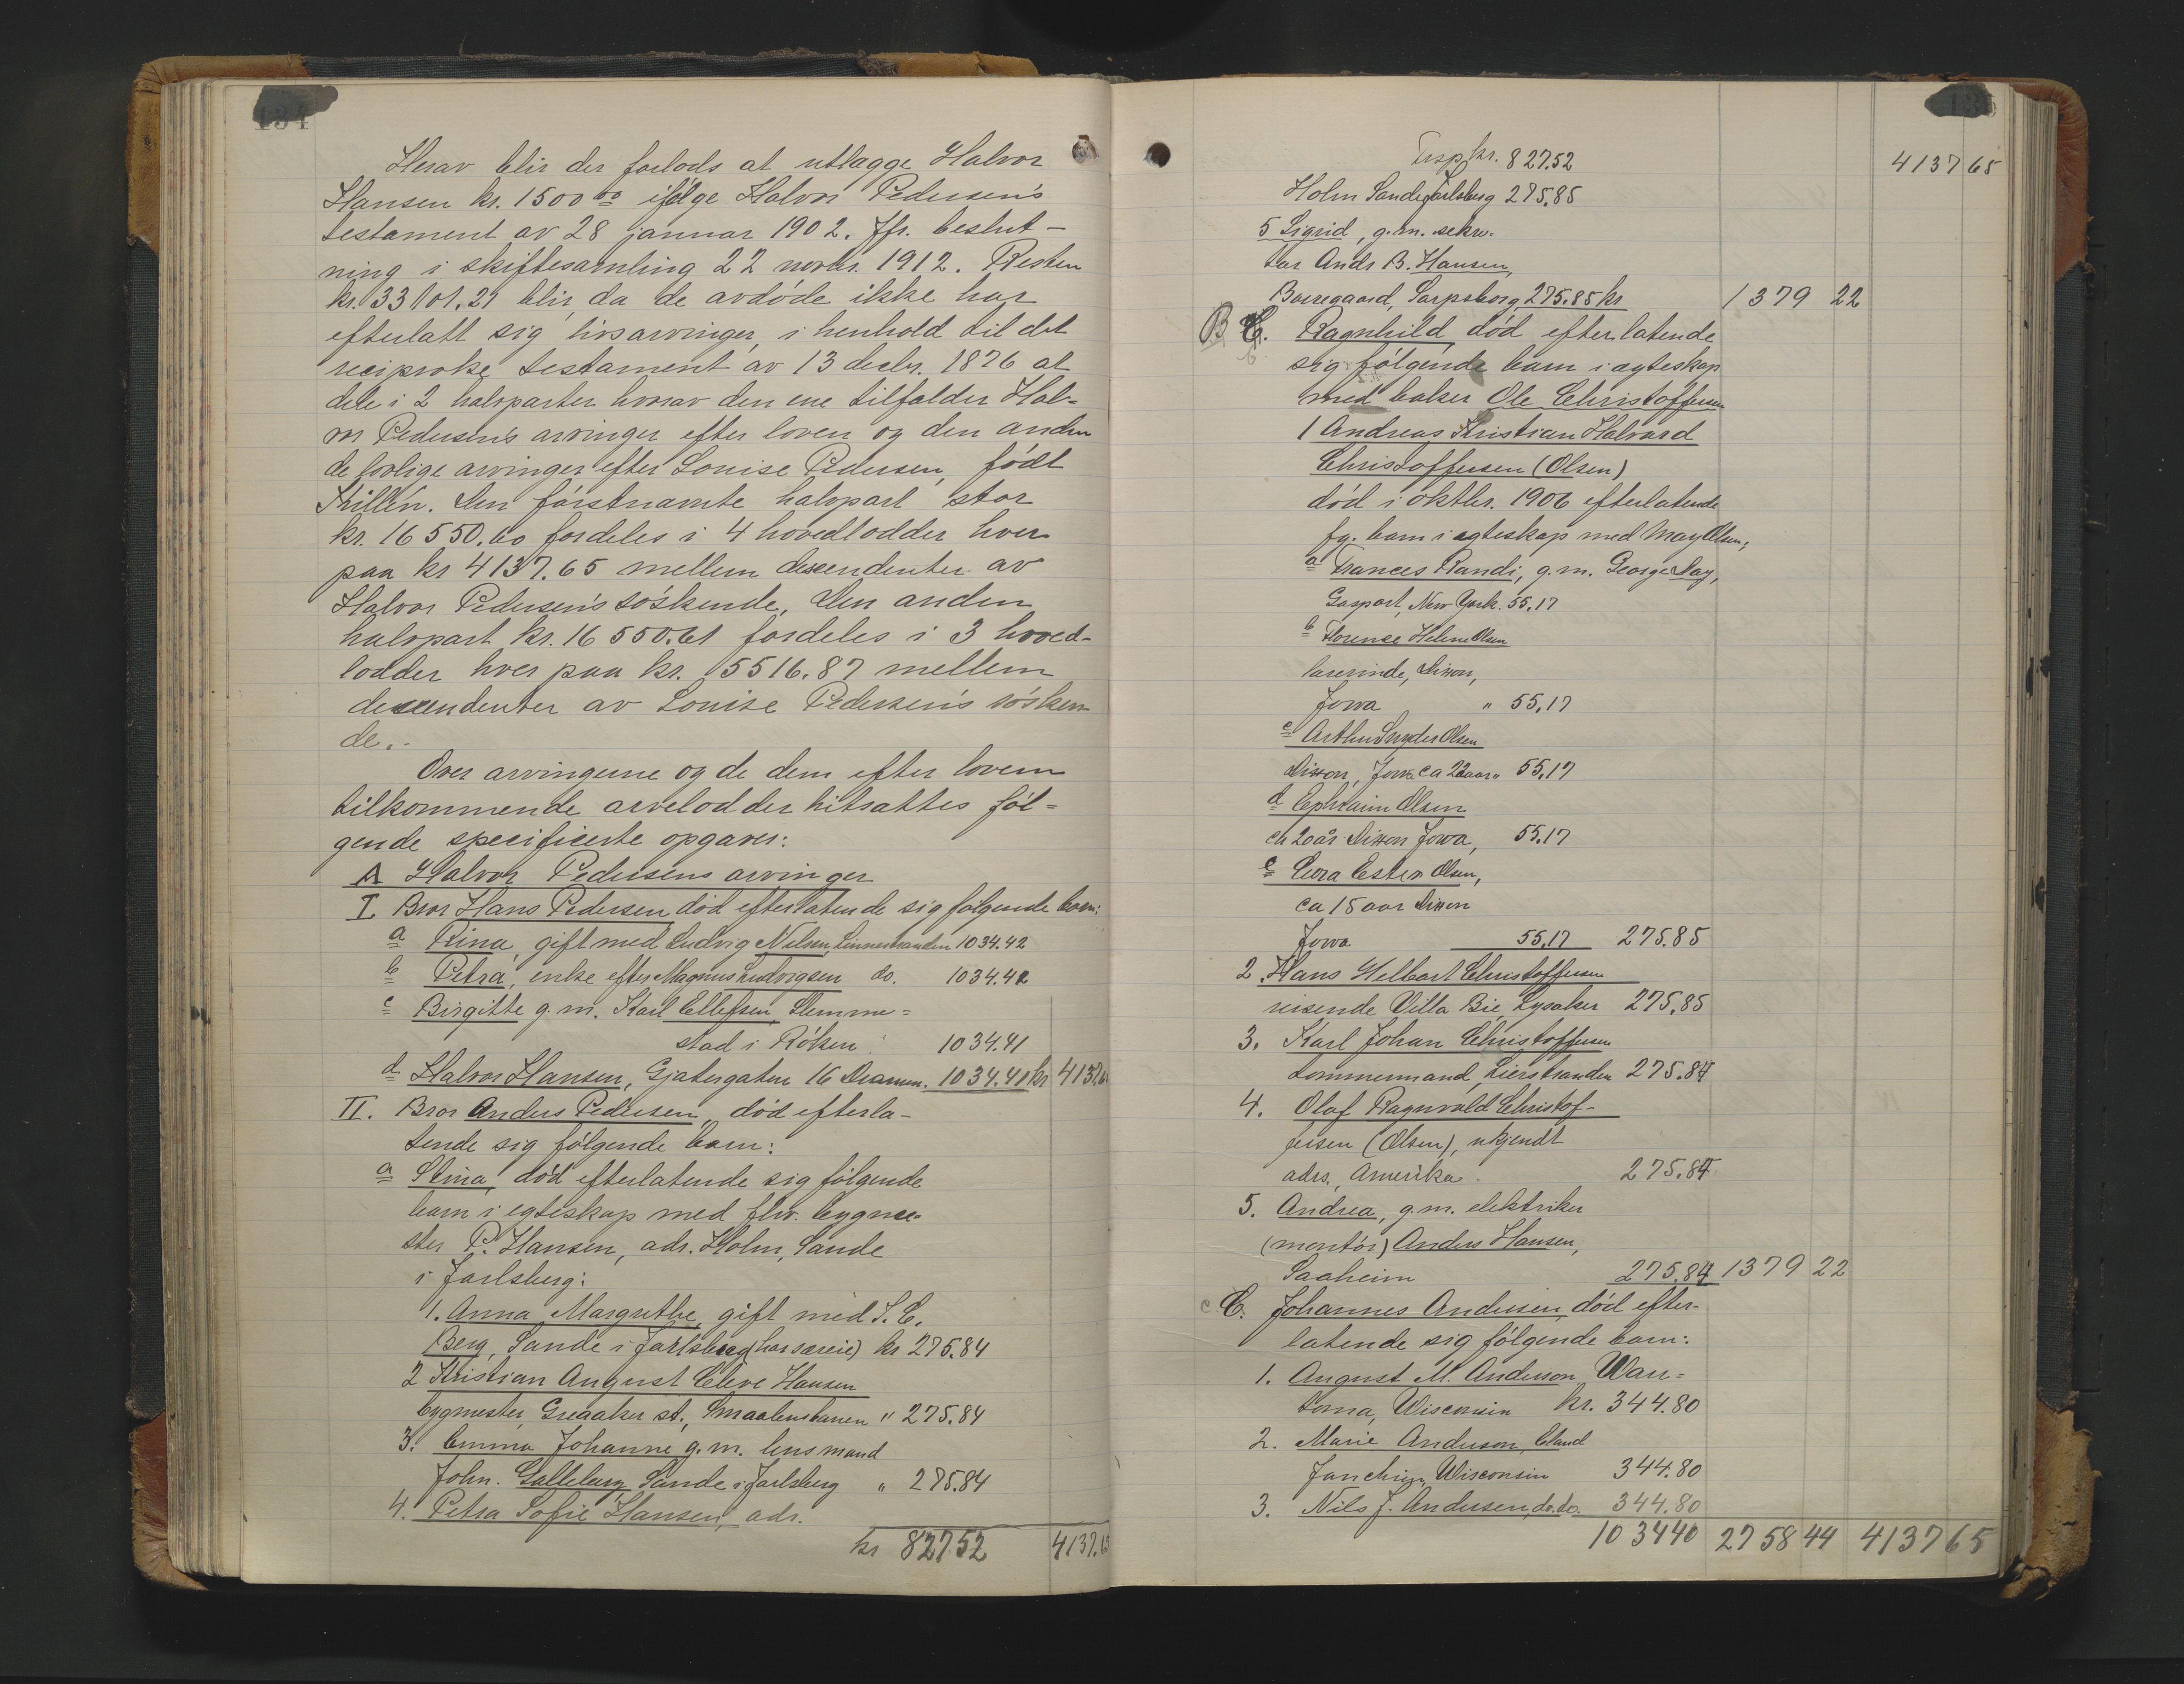 134
Herav blir der forlods at utlægge Halvor
Hansen kr. 1500 00 ifølge Halvor Pedersen's
testament av 28 januar 1902. Jfr. beslut-
ning i skiftesamling 22 novbr. 1912. Resten
kr. 33101.21 blir, da de avdøde ikke har
efterlatt sig livsarvinger, i henhold til det
reciproke testament av 13 decbr. 1876 at
dele i 2 halvparter hvorav den ene tilfalder Hal-
vor Pedersen's arvinger efter loven og den anden
de lovlige arvinger efter Louise Pedersen, født
Killén. Den førstnævnte halvpart stor
kr. 16550.60 fordeles i 4 hovedlodder hver
paa kr 4137.65 mellem descendenter av
Halvor Pedersen's søskende. Den anden
halvpart kr. 16550.61 fordeles i 3 hoved-
lodder hver paa kr. 5516.87 mellem
descendenter av Louise Pedersen's søsken-
de.-
Over arvingerne og de dem efter loven
tilkommende arvelodder hitsattes føl-
gende specificerte opgaver:
A Halvor Pedersens arvinger
I Bror Hans Pedersen død efterlatende sig følgende barn:
a Rina, gift med Ludvig Nilsen, Linnestranden 1034.42
b Petra, enke efter Magnus Ludvigsen do. 1034.41
c Birgitte g. m. Karl Ellefsen, Slemme-
stad i Røken 1034.41
d Halvor Hansen, Gjætergaten 16 Dramen. 1034.41 kr 4137.65
II. Bror Anders Pedersen, død efterla-
tende sig følgende barn:
a Stina, død efterlatende sig følgende
barn i egteskap med fhv. bygme-
ster P. Hansen, adr. Holm, Sande
i Jarlsberg:
1. Anna Margrethe, gift med S. C.
Berg, Sande i Jarlsberg (har særeie) kr 275.84
2 Kristian August Cleve Hansen
bygmester, Greaaker st., Smaalensbanen " 275.84
3. Emma Johanne g. m. lensmand
John. Galleberg Sande i Jarlsberg " 275.84
4. Petra Sofie Hansen, adr.
kr 827.52 4137.65
135
Trsp. kr. 827.52 4137 65
Holm Sande Jarlsberg 275.85
5 Sigrid, g. m. sekre-
tær Andr B. Hansen,
Borregaard, Sarpsborg 275.85 kr 1379 22
B. Ragnhild død efterlatende
sig følgende barn i ægteskap
med baker Ole Christoffersen
1 Andreas Kristian Halvard
Christoffersen (Olsen)
død i oktbr. 1906 efterlatende
fg. barn i egteskap med May Olsen;
a Frances Randi, g. m. George Day,
Gasport, New York. 55.17
b Florence Helene Olsen
lærerinde, Dixon,
Jowa " 55,17
c Arthur Snyder Olsen
Dixon, Jowa ca 22 aar " 55,17
d Ephraim Olsen
ca 20 år Dixon Jowa, 55.17
e Cora Ester Olsen,
ca 15 aar Dixon
Jowa 55,17 275.85
2 Hans Helbart Christoffersen
reisende Villa Bie, Lysaker 275,85
3. Karl Johan Christoffersen
tømmermand, Lierstranden 275.84
4. Olaf Ragnvald Christof-
fersen (Olsen), ukjendt
adrs., Amerika. 275.84
5. Andrea, g. m. elektriker
(montør) Anders Hansen,
Saaheim 275.84 1379 22
C. Johannes Andersen, død efter-
latende sig følgende barn:
1. August M. Anderson, Wau-
toma, Wisconsin kr. 344.80
2. Marie Anderson,
Wisconsin 344.80
3. Nils J. Andersen, do. do. 344.80
1034 40 2758 44 4137 65